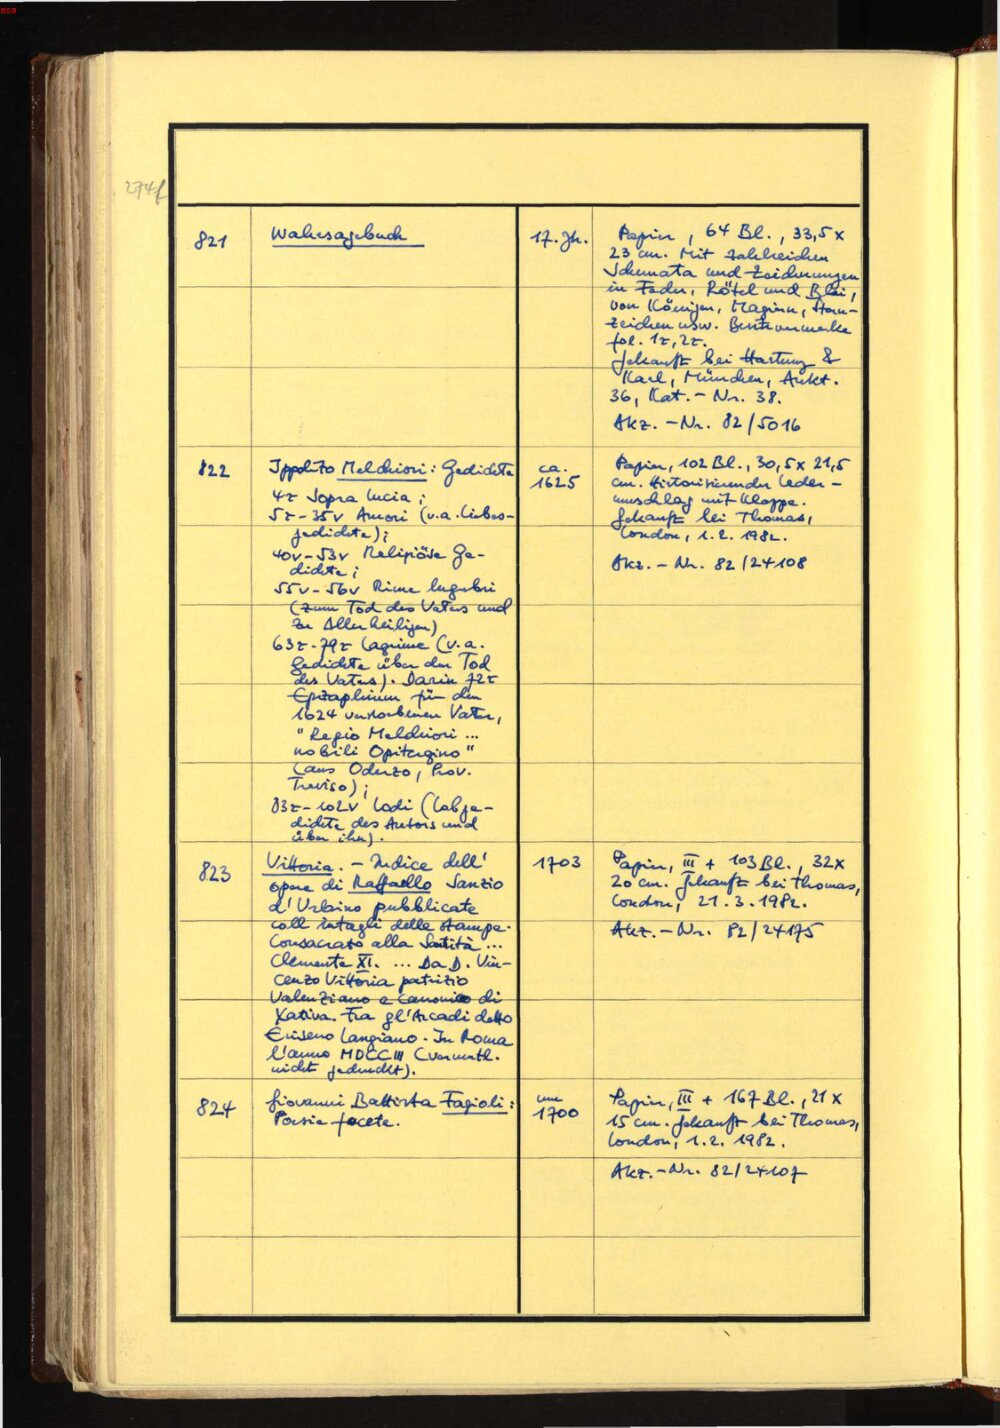 274f
821
Wahrsagebuch
17. Jh.
Papier, 64 Bl., 33,5 x
23 cm. Mit zahlreichen
Schemata und Zeichnungen
in Feder, Rötel und Blei,
von Königen, Magiern, Stern-
zeichen usw. Besitzvermerke
fol. 1r, 2r.
Gekauft bei Hartung &
Karl, München, Aukt.
36, Kat.-Nr. 38.
Akz.-Nr. 82/5016
822
Ippolito Melchiori: Gedichte
4r Sopra Lucia;
5r-35v Amori (v.a. Liebes-
gedichte);
40v-53v Religiöse Ge-
dichte;
55v-56v Rime lugubri
(zum Tod des Vaters und
zu Allerheiligen)
63r-79r Lagrime (v.a.
Gedichte über den Tod
des Vaters). Darin 72r
Epitaphium für den
1624 verstorbenen Vater,
"Regio Melchiori ...
nobili Opitergino"
(aus Oderzo, Prov.
Treviso);
83r-102v Lodi (Lobge-
dichte des Autors und
über ihn).
ca.
1625
Papier, 102 Bl., 30,5 x 21,5
cm. Historisierender Leder-
umschlag mit Klappe.
Gekauft bei Thomas,
London, 1.2. 1982.
Akz.-Nr. 82/24108
823
Vittoria. - Indice dell'
opere di Raffaello Sanzio
d'Urbino pubblicate
coll intagli delle stampe.
Consacrato alla Santità ...
Clemente XI. ... Da D. Vin-
cenzo Vittoria patrizio
Valenziano e Canonico di
Xativa. Fra gl'Arcadi detto
Eriseno Langiano. In Roma
l'anno MDCCIII (vermutl.
nicht gedruckt).
1703
Papier, III + 103 Bl., 32 x
20 cm. Gekauft bei Thomas,
London, 21.3.1982.
Akz.-Nr. 82/24175
824
Giovanni Battista Fagioli:
Poesie facete.
um
1700
Papier, III + 167 Bl., 21 x
15 cm. Gekauft bei Thomas,
London, 1.2. 1982.
Akz.-Nr. 82/24107